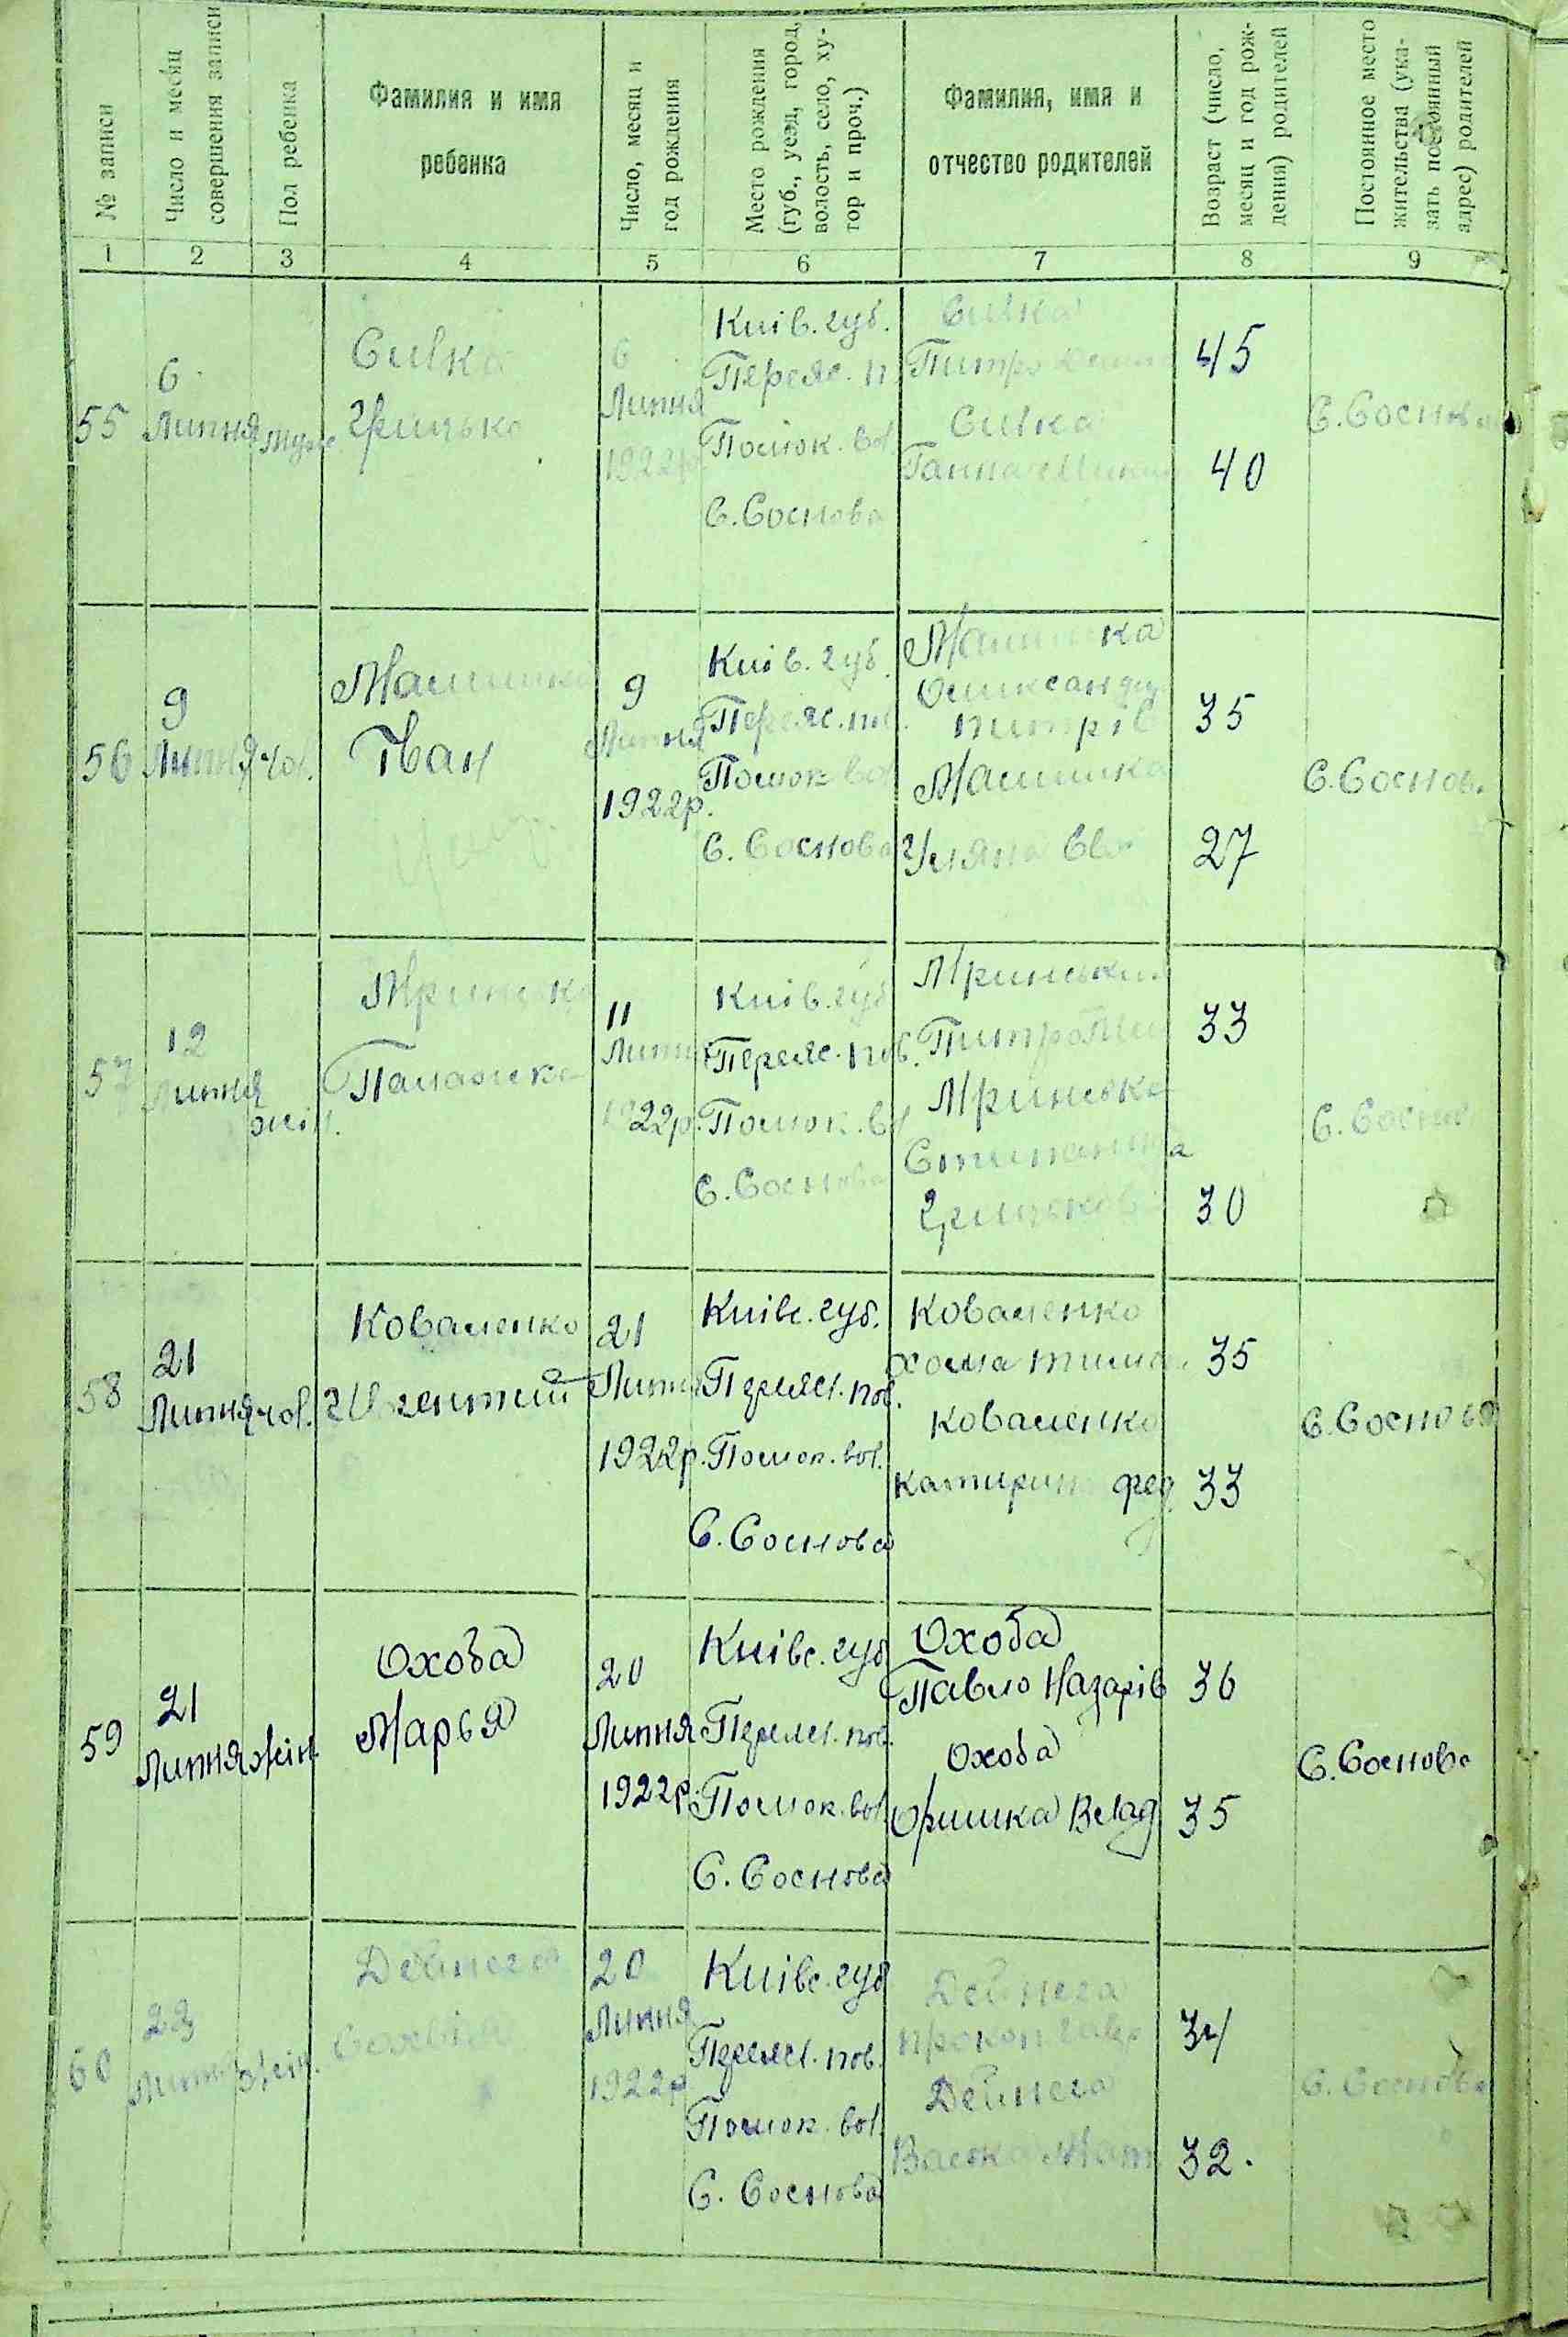 № записи
Число и месяц
совершения записи
Пол ребенка
Фамилия и имя
ребенка
Число, месяц и
год рождения
Место рождения
(губ., уезд, город,
волость, село, ху-
тор и проч.)
Фамилия, имя и
отчество родителей
Возраст (число,
месяц и год рож-
дения) родителей
Постоянное место
жительства (ука-
зать постоянный
адрес) родителей
1 2 3 4 5 6 7 8 9
55
6
Липня
Сивка
Грицько
6
Липня
1922р
Київ. губ.
Переяс. п.
Помок. вол.
С. Соснова
Сивка
Питро
Сивка
Ганна
45
40
С. Соснова
56
9
Липня
чол.
Іван
9
Липня
1922р.
Київ. губ.
Переяс. пов.
Помок. вол
С. Соснова
Олександр
питрів
Уляна
35
27
С. Соснов.
57
12
Липня
жін.
Палажка
11
Липня
1922р.
Київ. губ
Переяс. пов.
Помок. вол
С. Соснова
Мринський
Питро
Мринська
Степанида
Грицькова
33
30
С. Соснова
58
21
Липня
чол.
Коваленко
21
Липня
1922р.
Київс. губ.
Переясл. пов.
Помок. вол.
С. Соснова
Коваленко
хома тимо.
коваленко
катирина фед
35
33
С. Соснова
59
21
Липня
жін.
Охоба
Марья
20
Липня
1922р.
Київс. губ
Переясл. пов.
Помок. вол.
С. Соснова
Охоба
Павло Назарів
Охоба
Оришка Влад
36
35
С. Соснова
60
Липня
жін.
Дейнега
20
Липня
1922р
Київс. губ
Переясл. пов.
Помок. вол.
С. Соснова
Дейнега
прокоп
Дейнега
34
32.
С. Соснова